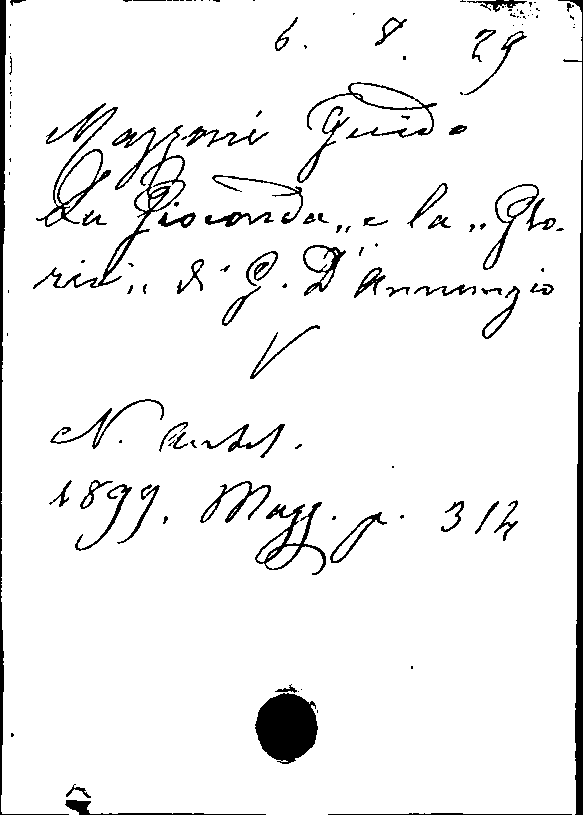 6. 8. 29
Mazzoni Guido
La Gioconda„ e la „Glo-
ria„ di G. D'Annunzio
V
N. Antol.
1899. Magg. p. 312